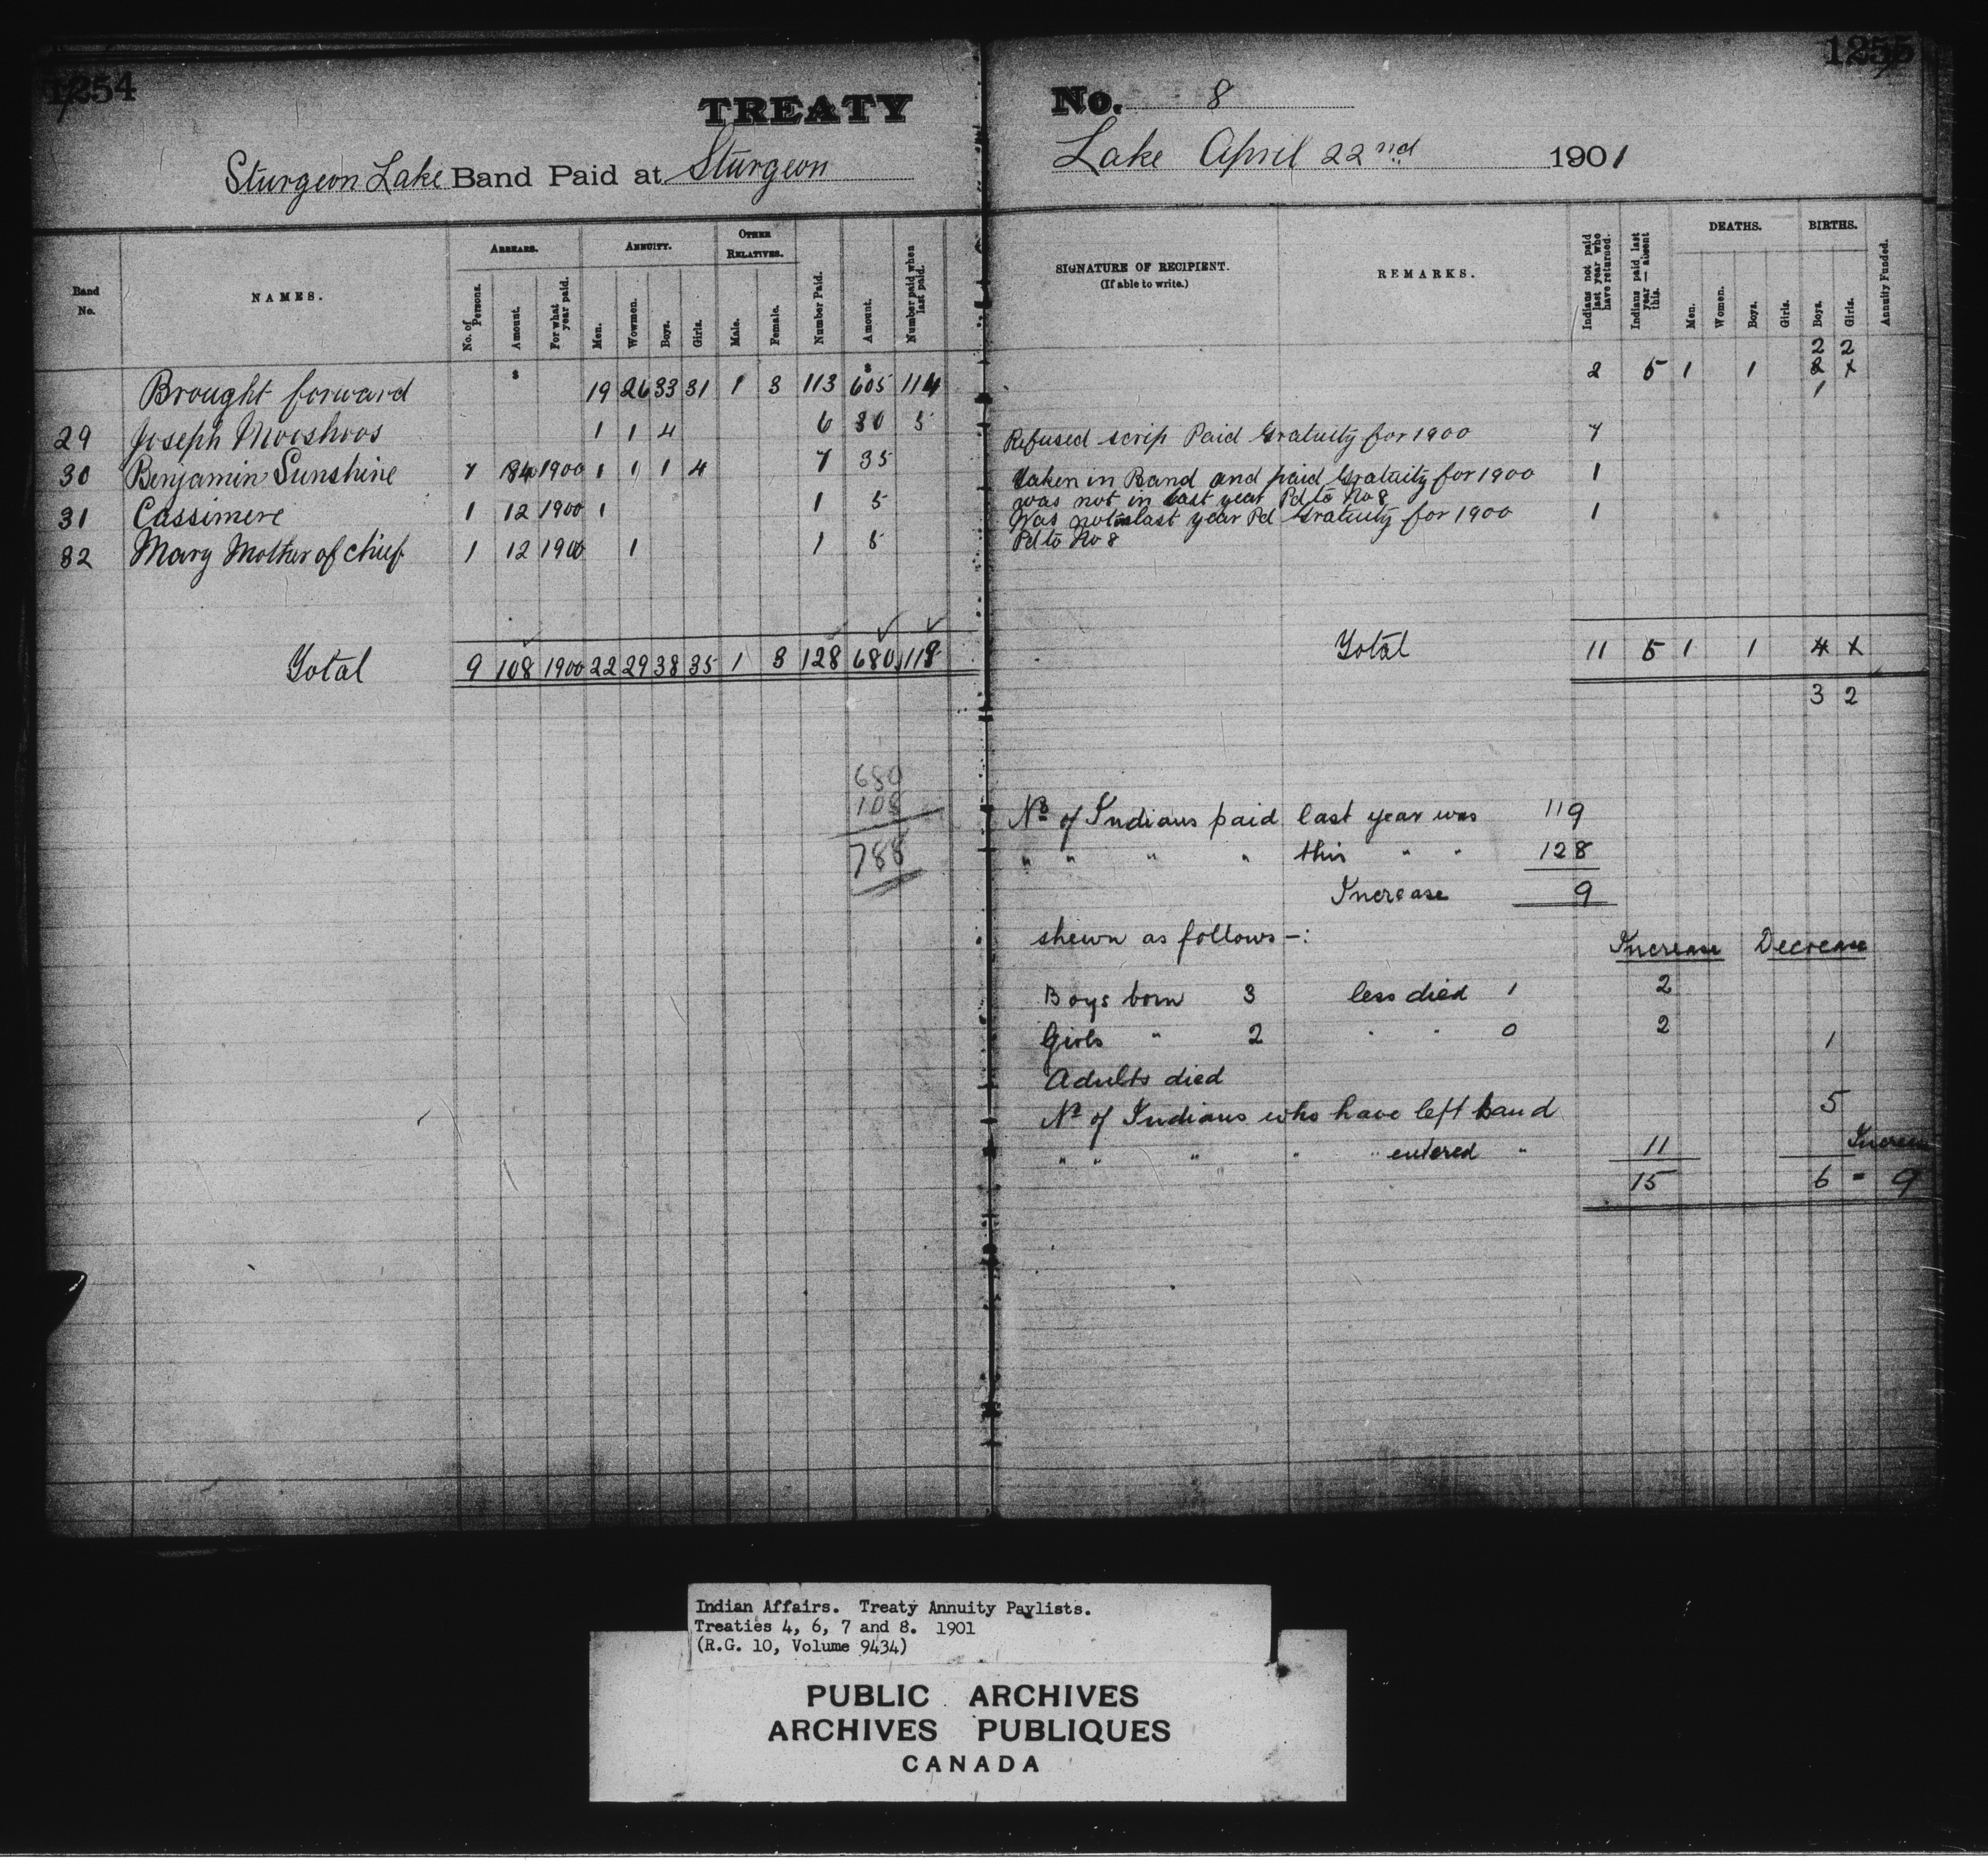 1254
1255
TREATY No. 8
Sturgeon Lake Band Paid at Sturgeon Lake April 22nd 1901
Band No.
NAMES.
ARREARS.
No. of Persons.
Amount.
For what year paid.
ANNUITY.
Men.
Wowmen.
Boys.
Girls.
OTHER RELATIVES.
Male.
Female.
Number Paid.
Amount.
Number paid when last paid.
SIGNATURE OF RECIPIENT.
(If able to write.)
REMARKS.
Indians not paid last year who have returned.
Indians paid last year — absent this.
DEATHS.
Men.
Women.
Boys.
Girls.
BIRTHS.
Boys.
Girls.
Annuity Funded.
$ $
2 2
Brought forward 19 26 33 31 1 3 113 605 114 2 5 1 1 x
1
29 Joseph Mooshoos 1 1 4 6 30 5 Refused scrip Paid Gratuity for 1900
30 Benjamin Sunshine 7 84 1900 1 1 1 4 7 35 Taken in Band and paid Gratuity for 1900 7
was not in last year Pd to No 8
31 Cassimere 1 12 1900 1 1 5 Was not in last year Pd Gratuity for 1900 1
Pd to No 8
32 Mary Mother of chief 1 12 1900 1 1 5 1
Total 9 108 1900 22 29 38 35 1 3 128 680 118 Total 11 5 1 1 4 x
3 2
680
108
788
No of Indians paid last year was 119
" " " " this " " 128
Increase 9
shewn as follows —:
Increase Decrease
Boys born 3 less died 1 2
Girls " 2 " " 0 2
Adults died 1
No of Indians who have left band 5
" " " " " entered " 11
Increase
15 6 = 9
Indian Affairs. Treaty Annuity Paylists.
Treaties 4, 6, 7 and 8. 1901
(R.G. 10, Volume 9434)
PUBLIC ARCHIVES
ARCHIVES PUBLIQUES
CANADA